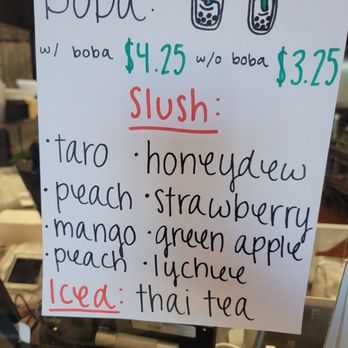 Boba:
w/ boba $4.25 w/o boba $3.25
Slush:
·taro ·honeydew
·peach ·strawberry
·mango ·green apple
·peach ·lychee
Iced: thai tea